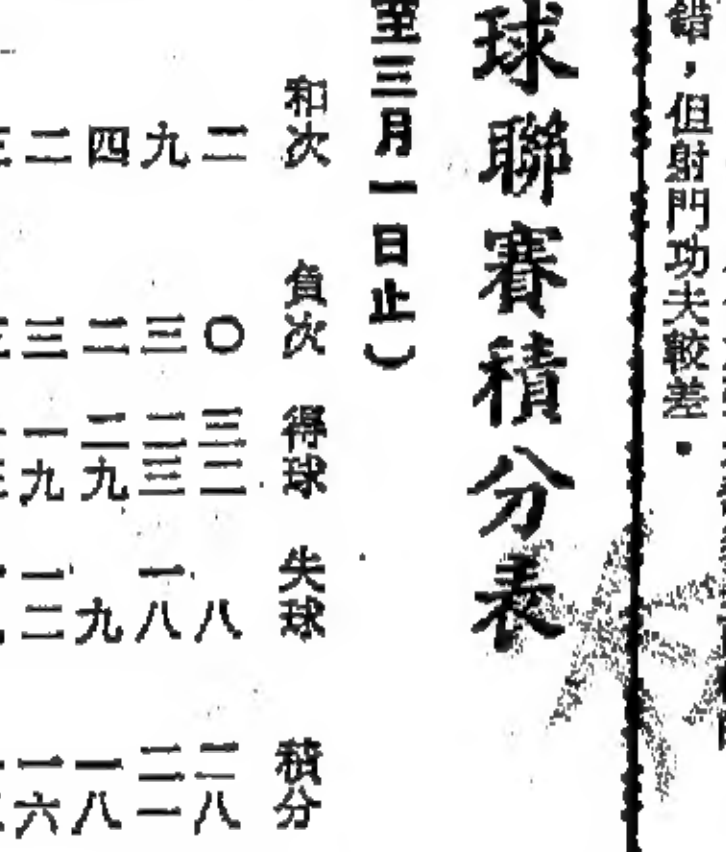 錯，但射門功夫較差．
球聯賽積分表
至三月一日止）
和次 負次 得球 失球 積分
二 〇 三二 八 二八
九 三 三三 一八 二一
四 二 二九 九 一八
二 三 一九 一二 一六